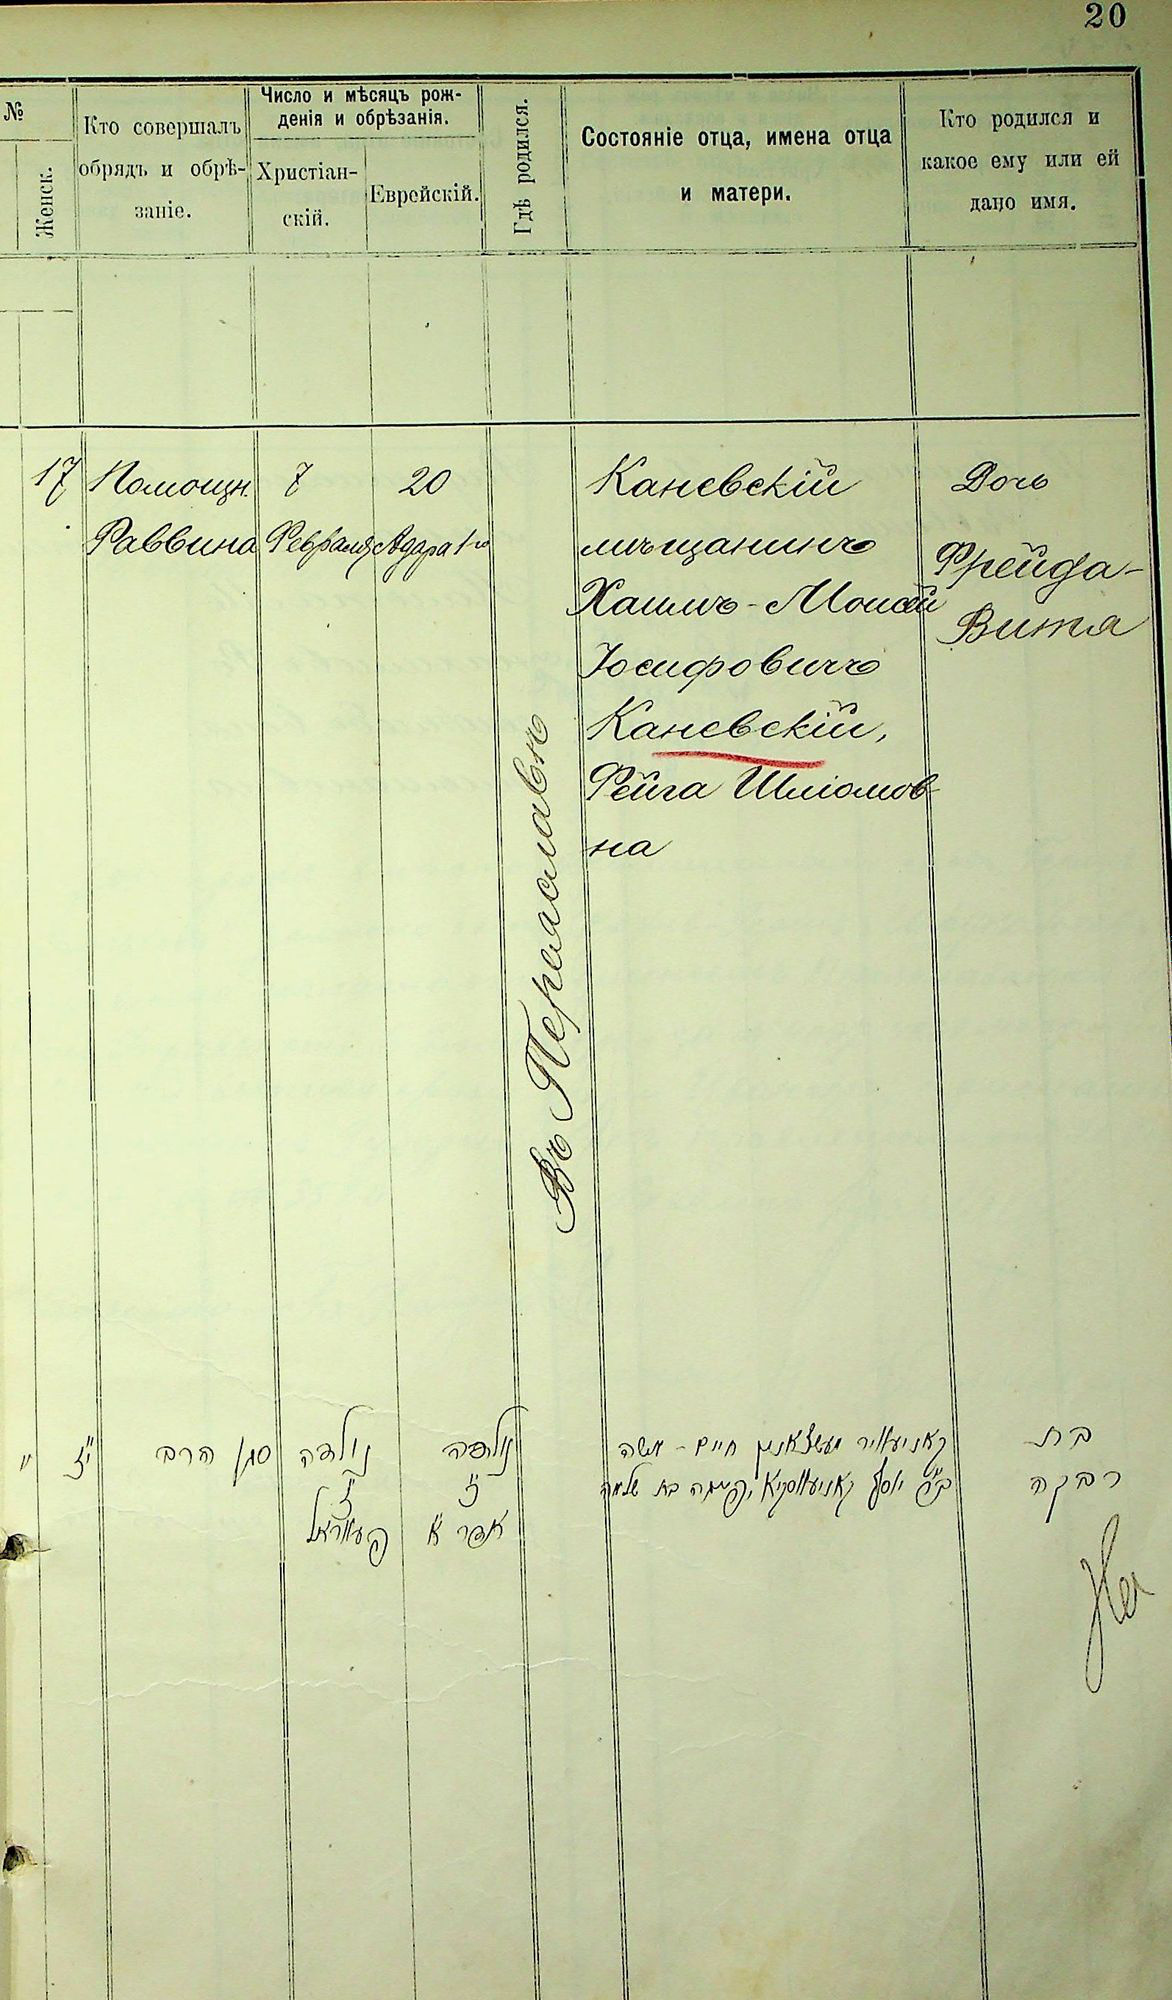 20
№
Женск.
Кто совершалъ
обрядъ и обрѣ-
заніе.
Число и мѣсяцъ рож-
денія и обрѣзанія.
Христіан-
скій.
Еврейскій.
Гдѣ родился.
Состояніе отца, имена отца
и матери.
Кто родился и
какое ему или ей
дано имя.
17
Помощн.
Раввина
7
Февраля
20
Адара 1го
Въ Переяславѣ
Каневскій
мѣщанинъ
Хаимъ-Моисей
Іосифовичъ
Каневскій,
Фейга Шліомов-
на
Дочь
Фрейда-
יז
סגן הרב
נולדה
ז
פעװראל
נולדה
אדר א
חיים - משה
יוסף בת שלמה
בת
רבקה